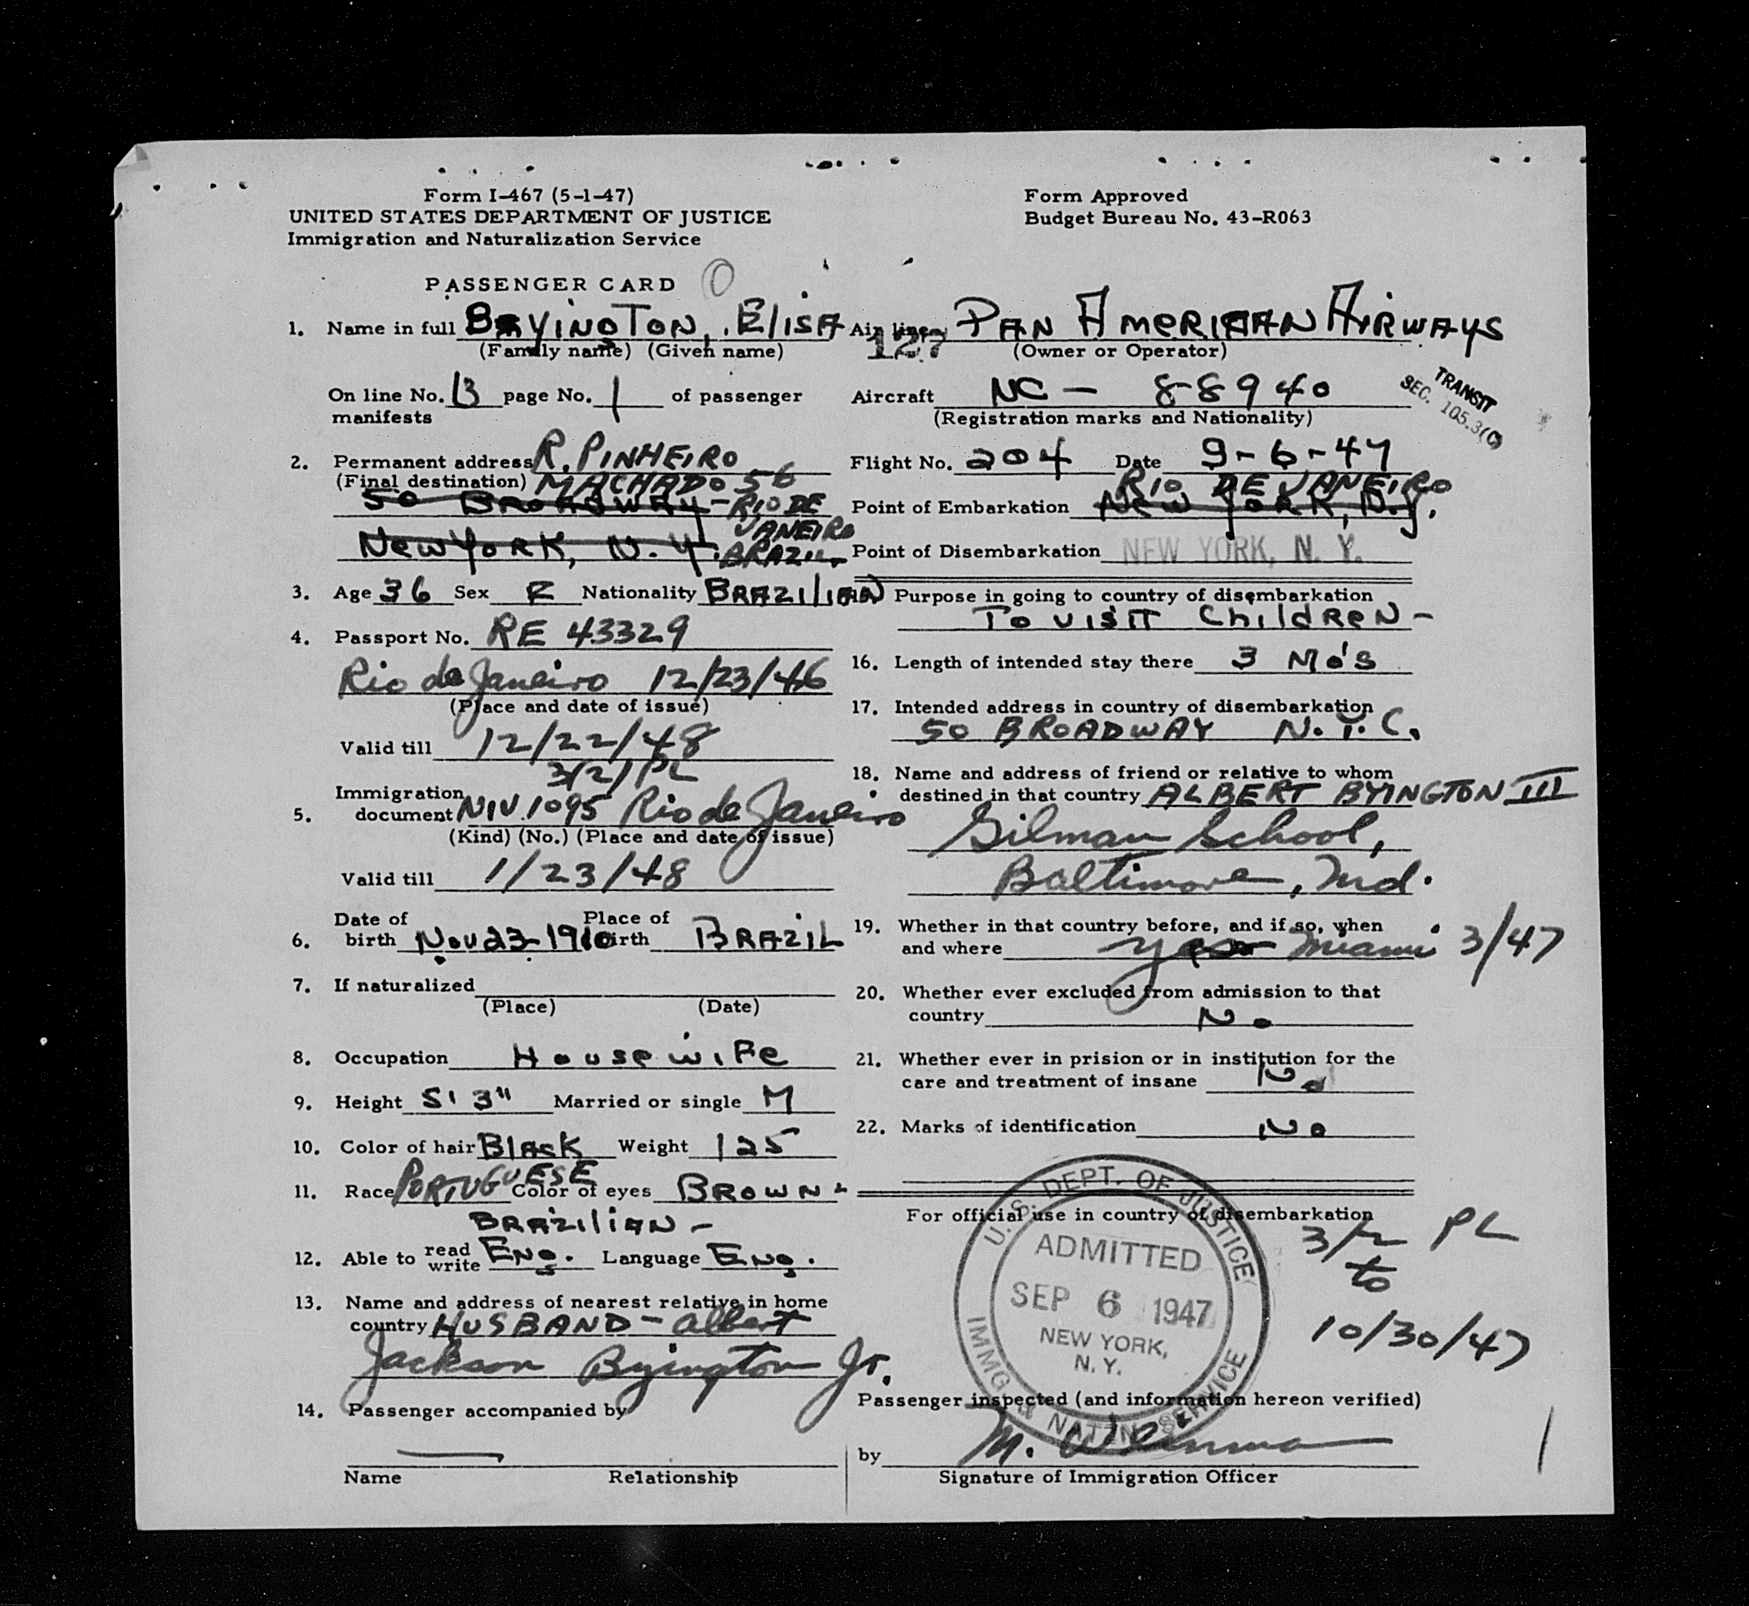 Form I-467 (5-1-47)
UNITED STATES DEPARTMENT OF JUSTICE
Immigration and Naturalization Service
Form Approved
Budget Bureau No. 43-R063
PASSENGER CARD
1. Name in full Byington, Elisa
(Family name) (Given name)
On line No. 13 page No. 1 of passenger
manifests
2. Permanent address R. PINHEIRO
(Final destination) MACHADO 56
50 BROADWAY - RIO DE
JANEIRO
New York, N.Y. BRAZIL
3. Age 36 Sex F Nationality BRAZILIAN
4. Passport No. RE 43329
Rio de Janeiro 12/23/46
(Place and date of issue)
Valid till 12/22/48
3(2) PL
Immigration
5. document NIV 1095 Rio de Janeiro
(Kind) (No.) (Place and date of issue)
Valid till 1/23/48
Date of Place of
6. birth Nov 23-1910 birth BRAZIL
7. If naturalized
(Place) (Date)
8. Occupation Housewife
9. Height 5' 3" Married or single M
10. Color of hair Black Weight 125
11. Race PORTUGUESE Color of eyes BROWN -
BRAZILIAN -
12. Able to read write Eng. Language Eng.
13. Name and address of nearest relative in home
country HUSBAND - Albert
Jackson Byington Jr.
14. Passenger accompanied by
Name Relationship
Air line PAN AMERICAN AIRWAYS
127 (Owner or Operator)
Aircraft NC - 88940
(Registration marks and Nationality)
TRANSIT
SEC. 105.3(C)
Flight No. 204 Date 9-6-47
RIO DE JANEIRO
Point of Embarkation New York, N.Y.
Point of Disembarkation NEW YORK, N. Y.
Purpose in going to country of disembarkation
To visit Children -
16. Length of intended stay there 3 Mo's
17. Intended address in country of disembarkation
50 BROADWAY N.Y.C.
18. Name and address of friend or relative to whom
destined in that country ALBERT BYINGTON III
Gilman School,
Baltimore, Md.
19. Whether in that country before, and if so, when
and where yes Miami 3/47
20. Whether ever excluded from admission to that
country No
21. Whether ever in prision or in institution for the
care and treatment of insane No
22. Marks of identification No
For official use in country of disembarkation
U. S. DEPT. OF JUSTICE
ADMITTED
SEP 6 1947
NEW YORK,
N. Y.
IMMIG & NATZN SERVICE
3/2 PL
to
10/30/47
Passenger inspected (and information hereon verified)
by M.
Signature of Immigration Officer